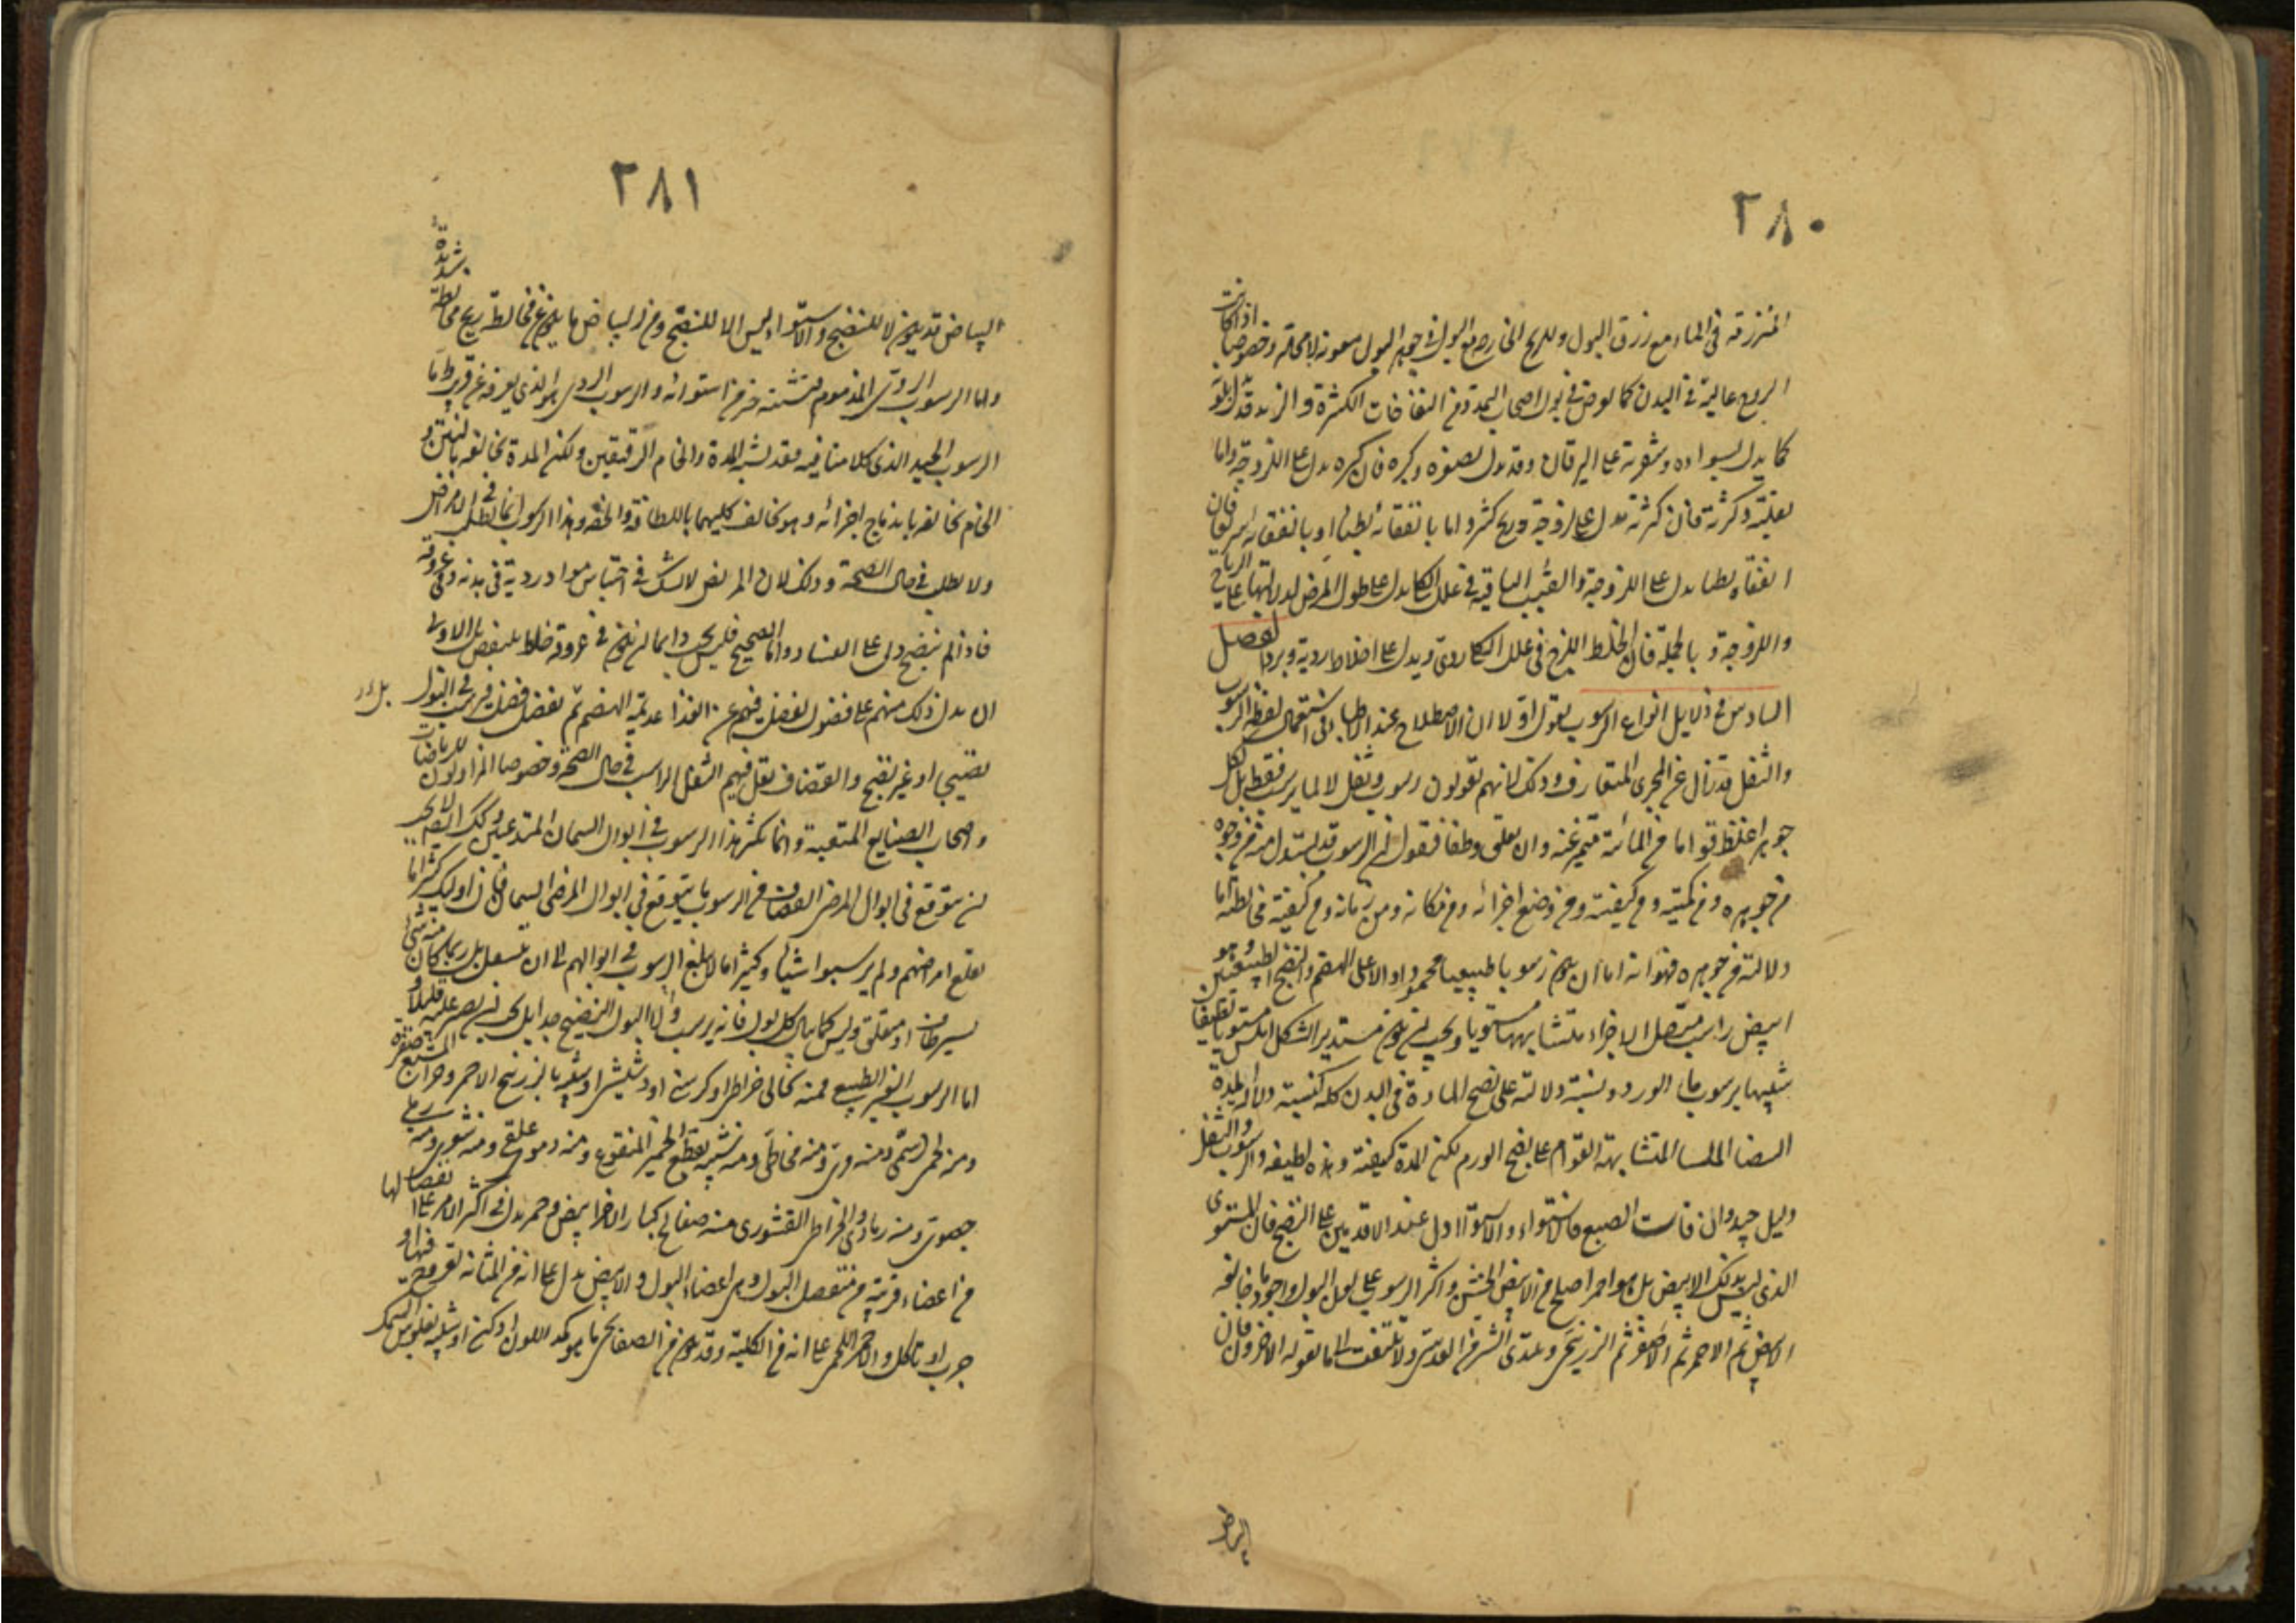 ٢٨٠
المنزرقة فى الماء مع زرق البول وللريح الخارجة مع البول فى جوهر البول معونة لا محالة وخصوصا اذا كانت
الريح عالية فى البدن كما يعرض فى بول اصحاب التمدد من النفاخات الكثيرة والزبد قد يدل بلونه
كما يدل لسواده وشقرته على اليرقان وقد يدل بصغره وكبره فان كبره يدل على اللزوجة واما
بقلته وكثرته فان كثرته تدل على لزوجة وريح كثيرة واما بانفقائه بطيئا او بانفقائه سريعا فان
انفقاه بطيئا يدل على اللزوجة والقبب الباقية فى علل الكلى يدل على طول المرض لدلالتها على الرياح
واللزوجة وبالجملة فان الخلط اللزج فى علل الكلى ردى ويدل على اخلاط ردية وبرد الفصل
السادس فى دلايل انواع الرسوب نقول اولا ان الاصطلاح عند الاطباء فى استعمال لفظة الرسوب
والثفل قد زال عن المجرى المتعارف وذلك لانهم يقولون رسوب وثفل لا لما يرسب فقط بل لكل
جوهر اغلظ قواما من المائية متميز عنه وان تعلق وطفا فنقول ان الرسوب قد يستدل منه من وجوه
من جوهره ومن كميته ومن كيفيته ومن وضع اجزائه ومن مكانه ومن زمانه ومن كيفية مخالطته اما
دلالته من جوهره فهو انه اما ان يكون رسوبا طبيعيا محمودا دالا على الهضم والنضج الطبيعيين وهو
ابيض راسب متصل الاجزاء متشابهها مستويا ويجب ان يكون مستدير الشكل املس مستويا لطيفا
شبيها برسوب ماء الورد ونسبة دلالته على نضج المادة فى البدن كله كنسبة دلالة المدة
البيضا الملسا المتشابهة القوام على نضج الورم لكن المدة كثيفة وهذه لطيفة والرسوب والثفل
دليل جيد وان فات الصبغ فالاستواء والاستوا ادل عند الاقدمين على النضج فان المستوى
الذى ليس بذلك الابيض بل هو احمر اصلح من الابيض الخشن واكثر الرسوب على لون البول واجود ما خالفه
الابيض ثم الاحمر ثم الاصفر ثم الزرنيخى ويبتدى الشر من العدسى ولا تلتفت الى ما يقوله الاخرون فان
البياض
٢٨١
البياض قد يكون لا للنضج والاستواء ليس الا للنضج ومن البياض ما يكون عن مخالطة ريح مخالطة شديدة
واما الرسوب الردى المذموم فتشتته خير من استوائه والرسوب الردى هو الذى يعرفه عن قريب واما
الرسوب الجيد الذى كلامنا فيه فقد يشبه المدة والخام الرقيقين ولكن المدة تخالفه بالنتن و
الخام يخالفه باندماج اجزائه وهو يخالف كليهما باللطافة والخفة وهذا الرسوب انما يطلب فى الامراض
ولا يطلب فى حال الصحة وذلك لان المريض لا شك فى احتباس مواد ردية فى بدنه وفى عروقه
فاذا لم ينضج دل على الفساد واما الصحيح فليس يجب دايما ان يكون فى عروقه خلط ينتفض بل الاولى
ان يدل ذلك منهم على فضول تفضل فيهم عن الغذا عديمة الهضم ثم تفضل فضل يرسب فى البول
نضيجا او غير نضيج والقضاف يقل فيهم الثفل الراسب فى حال الصحة وخصوصا المزاولون للرياضات
واصحاب الصنايع المتعبة وانما يكثر هذا الرسوب فى ابوال السمان المتدعين وكذلك ايضا لا يجب
ان يتوقع فى ابوال المرضى القضاف من الرسوب ما يتوقع فى ابوال المرضى السمان فان اولئك كثيرا ما
تقلع امراضهم ولم يرسبوا شيئا وكثيرا ما لا يبلغ الرسوب فى ابوالهم الى ان يتسفل بل ربما كان منه شئ
يسير طاف او متعلق وليس كما يقال كل بول فانه يرسب والا البول النضيج جدا بل يجب ان يصبر عليه قليلا و
اما الرسوب الغير الطبيعى فمنه نخالى خراطى او كرسنى او دشيشى او شبيه بالزرنيخ الاحمر وحزان المشبع صفرة
ومنه لحمى ومنه دسمى ومنه مدى ومنه مخاطى ومنه شبيه بقطع الخمير المنقوع ومنه دموى علقى ومنه شعرى ومنه رملى
حصوى ومنه رمادى والخراطى القشورى منه صفايح كبار الاجزا بيض وحمر يدل فى اكثر الامر على انفصالها
من اعضاء قريبة من منفصل البول وهى اعضاء البول والابيض يدل على انه من المثانة لقروح فيها او
جرب او تاكل والاحمر اللحمى على انه من الكلية وقد يكون من الصفايحى ما هو كمد اللون ادكن او شبيه بفلوس السمك